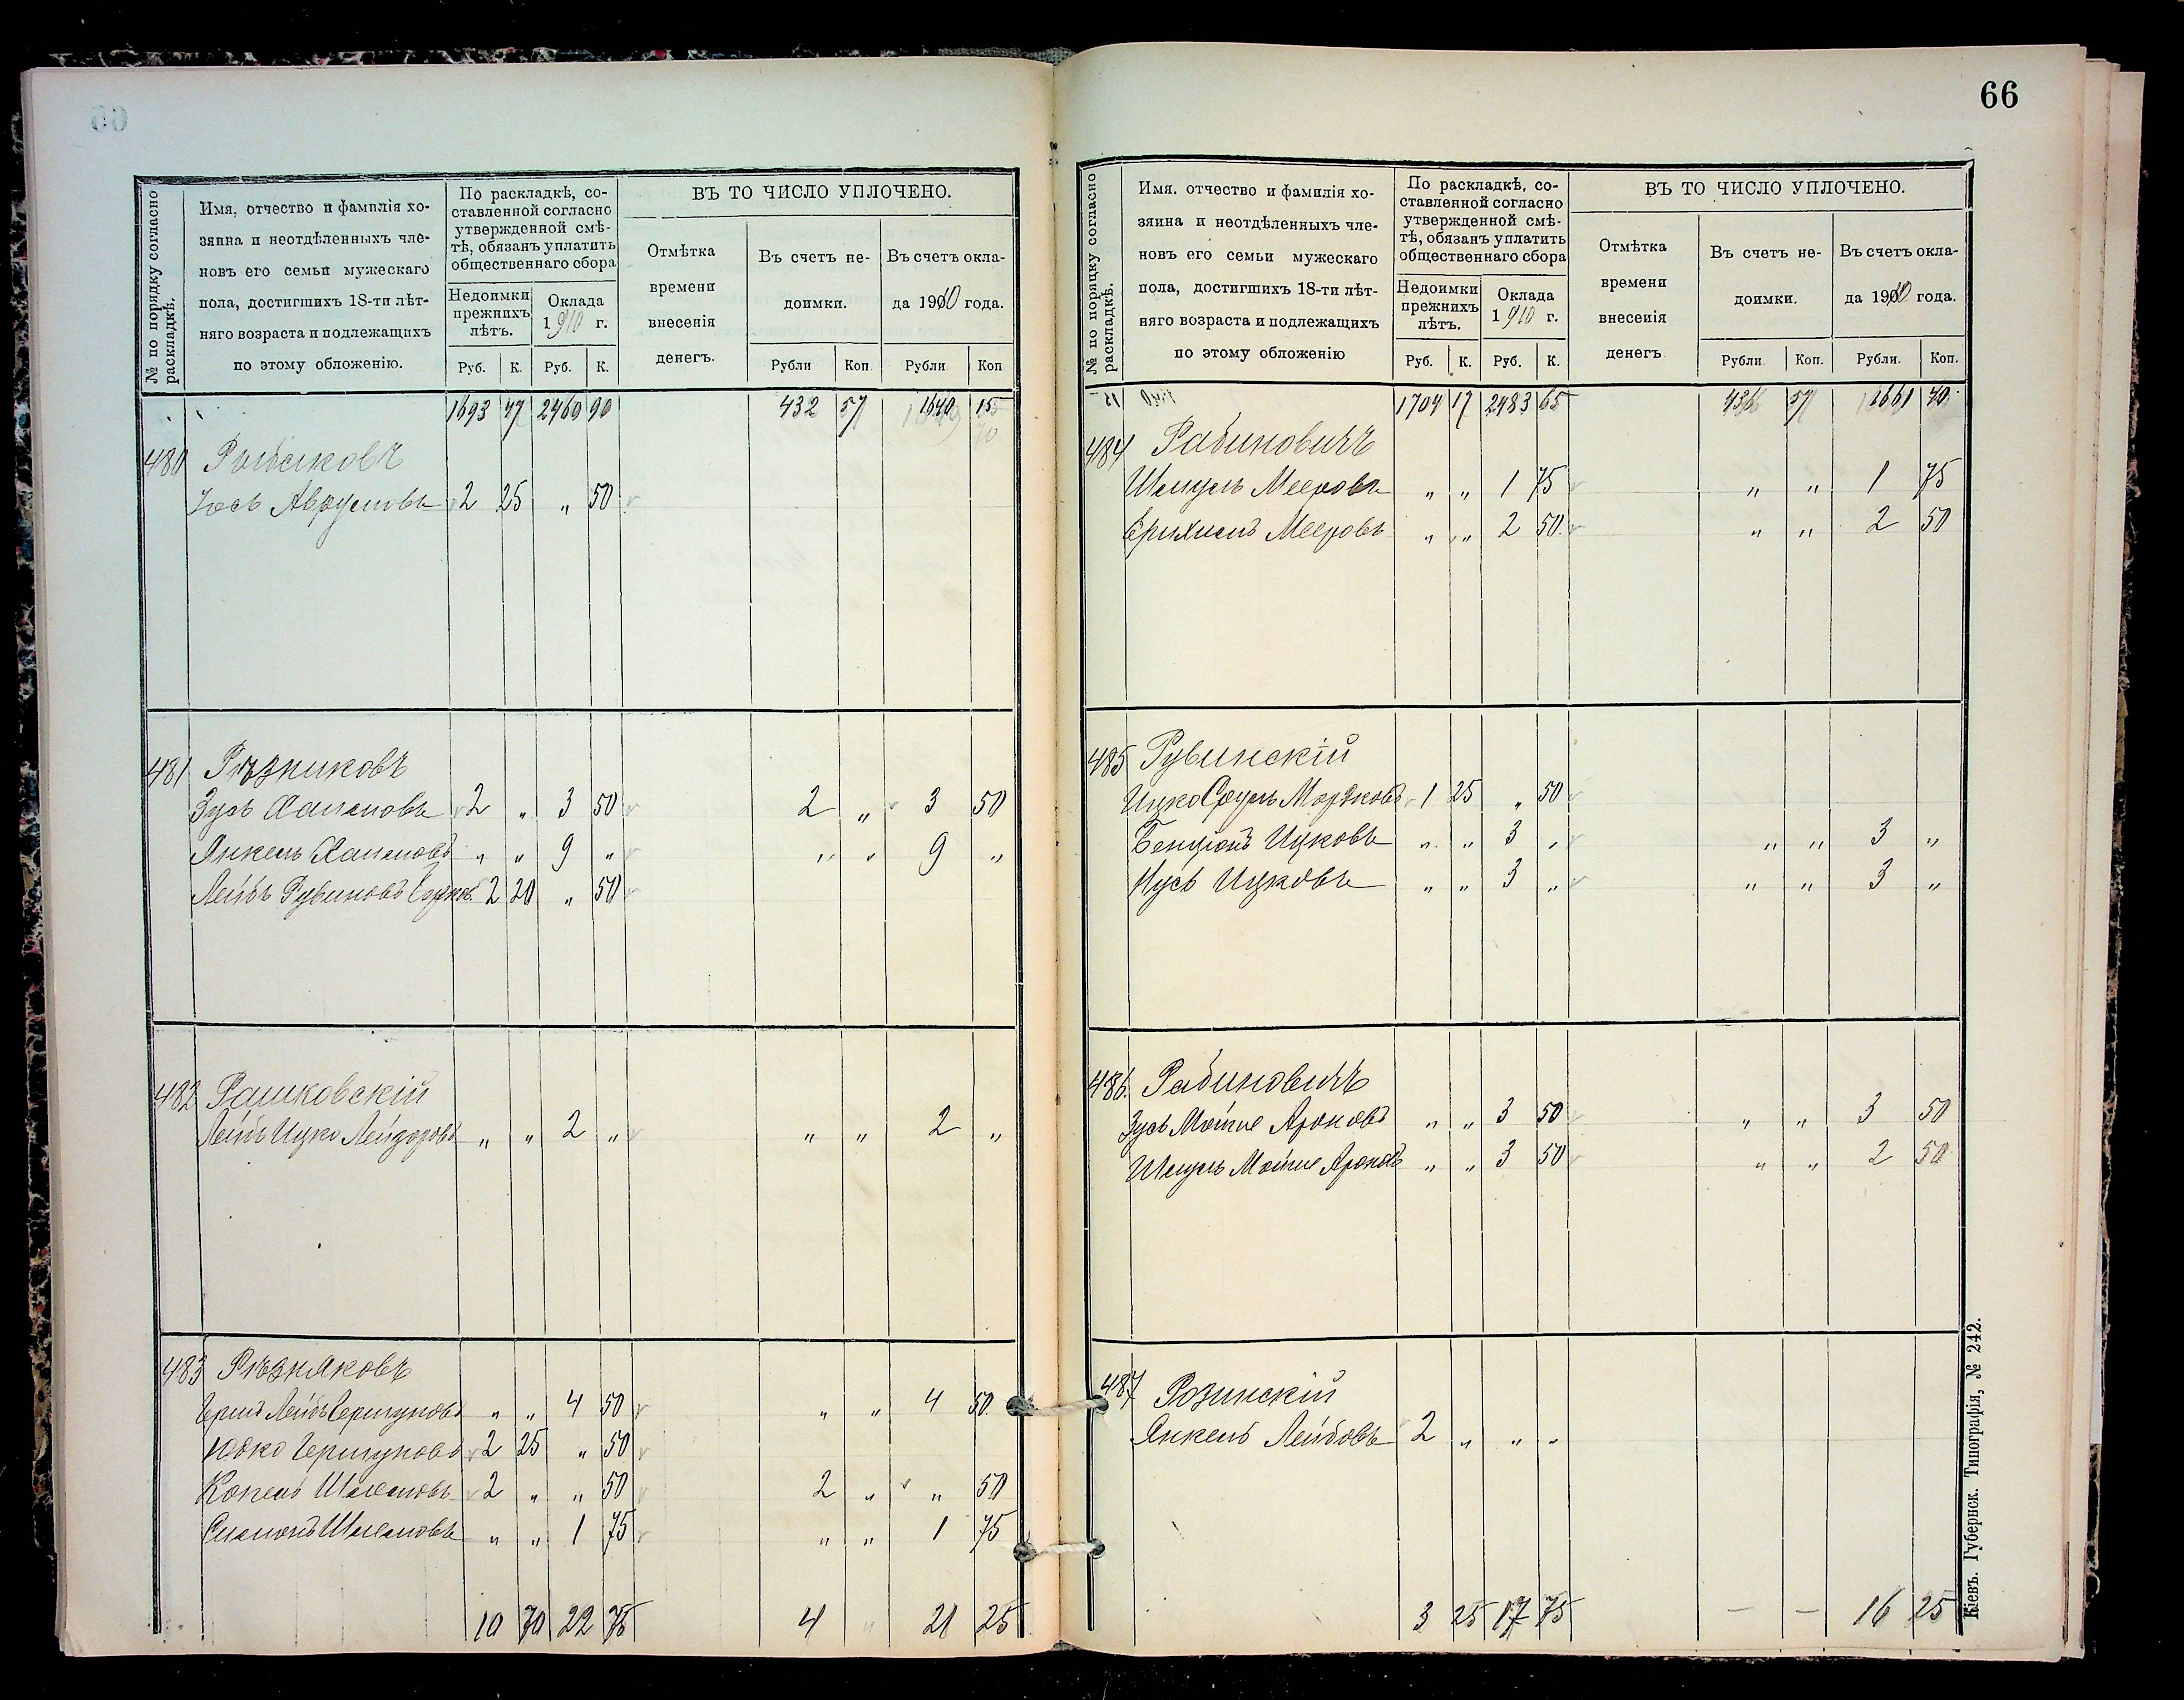 66
№ по порядку согласно раскладкѣ.
Имя, отчество и фамилія хо-
зяина и неотдѣленныхъ чле-
новъ его семьи мужескаго
пола, достигшихъ 18-ти лѣт-
няго возраста и подлежащихъ
по этому обложенію.
По раскладкѣ, со-
ставленной согласно
утвержденной смѣ-
тѣ, обязанъ уплатить
общественнаго сбора
Недоимки
прежнихъ
лѣтъ.
Оклада
1910 г.
Руб. К. Руб. К.
ВЪ ТО ЧИСЛО УПЛОЧЕНО.
Отмѣтка
времени
внесенія
денегъ.
Въ счетъ не-
доимки.
Въ счетъ окла-
да 1910 года.
Рубли Коп. Рубли Коп
1693 47 2460 90 432 57 1640 15
480 Рыбаковъ
Іось Аврумовъ 2 25 „ 50
481 Рѣзниковъ
Зусь Хаимовъ 2 „ 3 50 2 „ 3 50
Янкель Хаимовъ „ „ 9 „ „ „ 9 „
Лейбъ Рувиновъ 2 20 „ 50
482 Рашковскій
Лейбъ Ицко Лейзоровъ „ „ 2 „ „ „ 2 „
483 Рѣзняковъ
Гершъ Лейбъ Гершуновъ „ „ 4 50 „ „ 4 50
Юдко Гершуновъ 2 25 „ 50
Копель Шлемовъ 2 „ „ 50 2 „ „ 50
Симонъ Шлемовъ „ „ 1 75 „ „ 1 75
10 70 22 75 4 „ 21 25
№ по порядку согласно раскладкѣ.
Имя, отчество и фамилія хо-
зяина и неотдѣленныхъ чле-
новъ его семьи мужескаго
пола, достигшихъ 18-ти лѣт-
няго возраста и подлежащихъ
по этому обложенію
По раскладкѣ, со-
ставленной согласно
утвержденной смѣ-
тѣ, обязанъ уплатить
общественнаго сбора
Недоимки
прежнихъ
лѣтъ.
Оклада
1910 г.
Руб. К. Руб. К.
ВЪ ТО ЧИСЛО УПЛОЧЕНО.
Отмѣтка
времени
внесенія
денегъ
Въ счетъ не-
доимки.
Въ счетъ окла-
да 1910 года.
Рубли Коп. Рубли. Коп.
1704 17 2483 65 436 57 1661 40
484 Рабиновичъ
Шмуль Мееровъ „ „ 1 75 „ „ 1 75
Ерихимъ Мееровъ „ „ 2 50 „ „ 2 50
485 Рувинскій
Ицко Сруль Мордковъ 1 25 „ 50
Бенціонъ Ицковъ „ „ 3 „ „ „ 3 „
Нусь Ицковъ „ „ 3 „ „ „ 3 „
486. Рабиновичъ
Зусь Мотие Ароновъ „ „ 3 50 „ „ 3 50
Шмуль Мотие Ароновъ „ „ 3 50 „ „ 2 50
487 Розинскій
Янкель Лейбовъ 2 „ „ „
3 25 17 75 — — 16 25
Кіевъ. Губернск. Типографія, № 242.